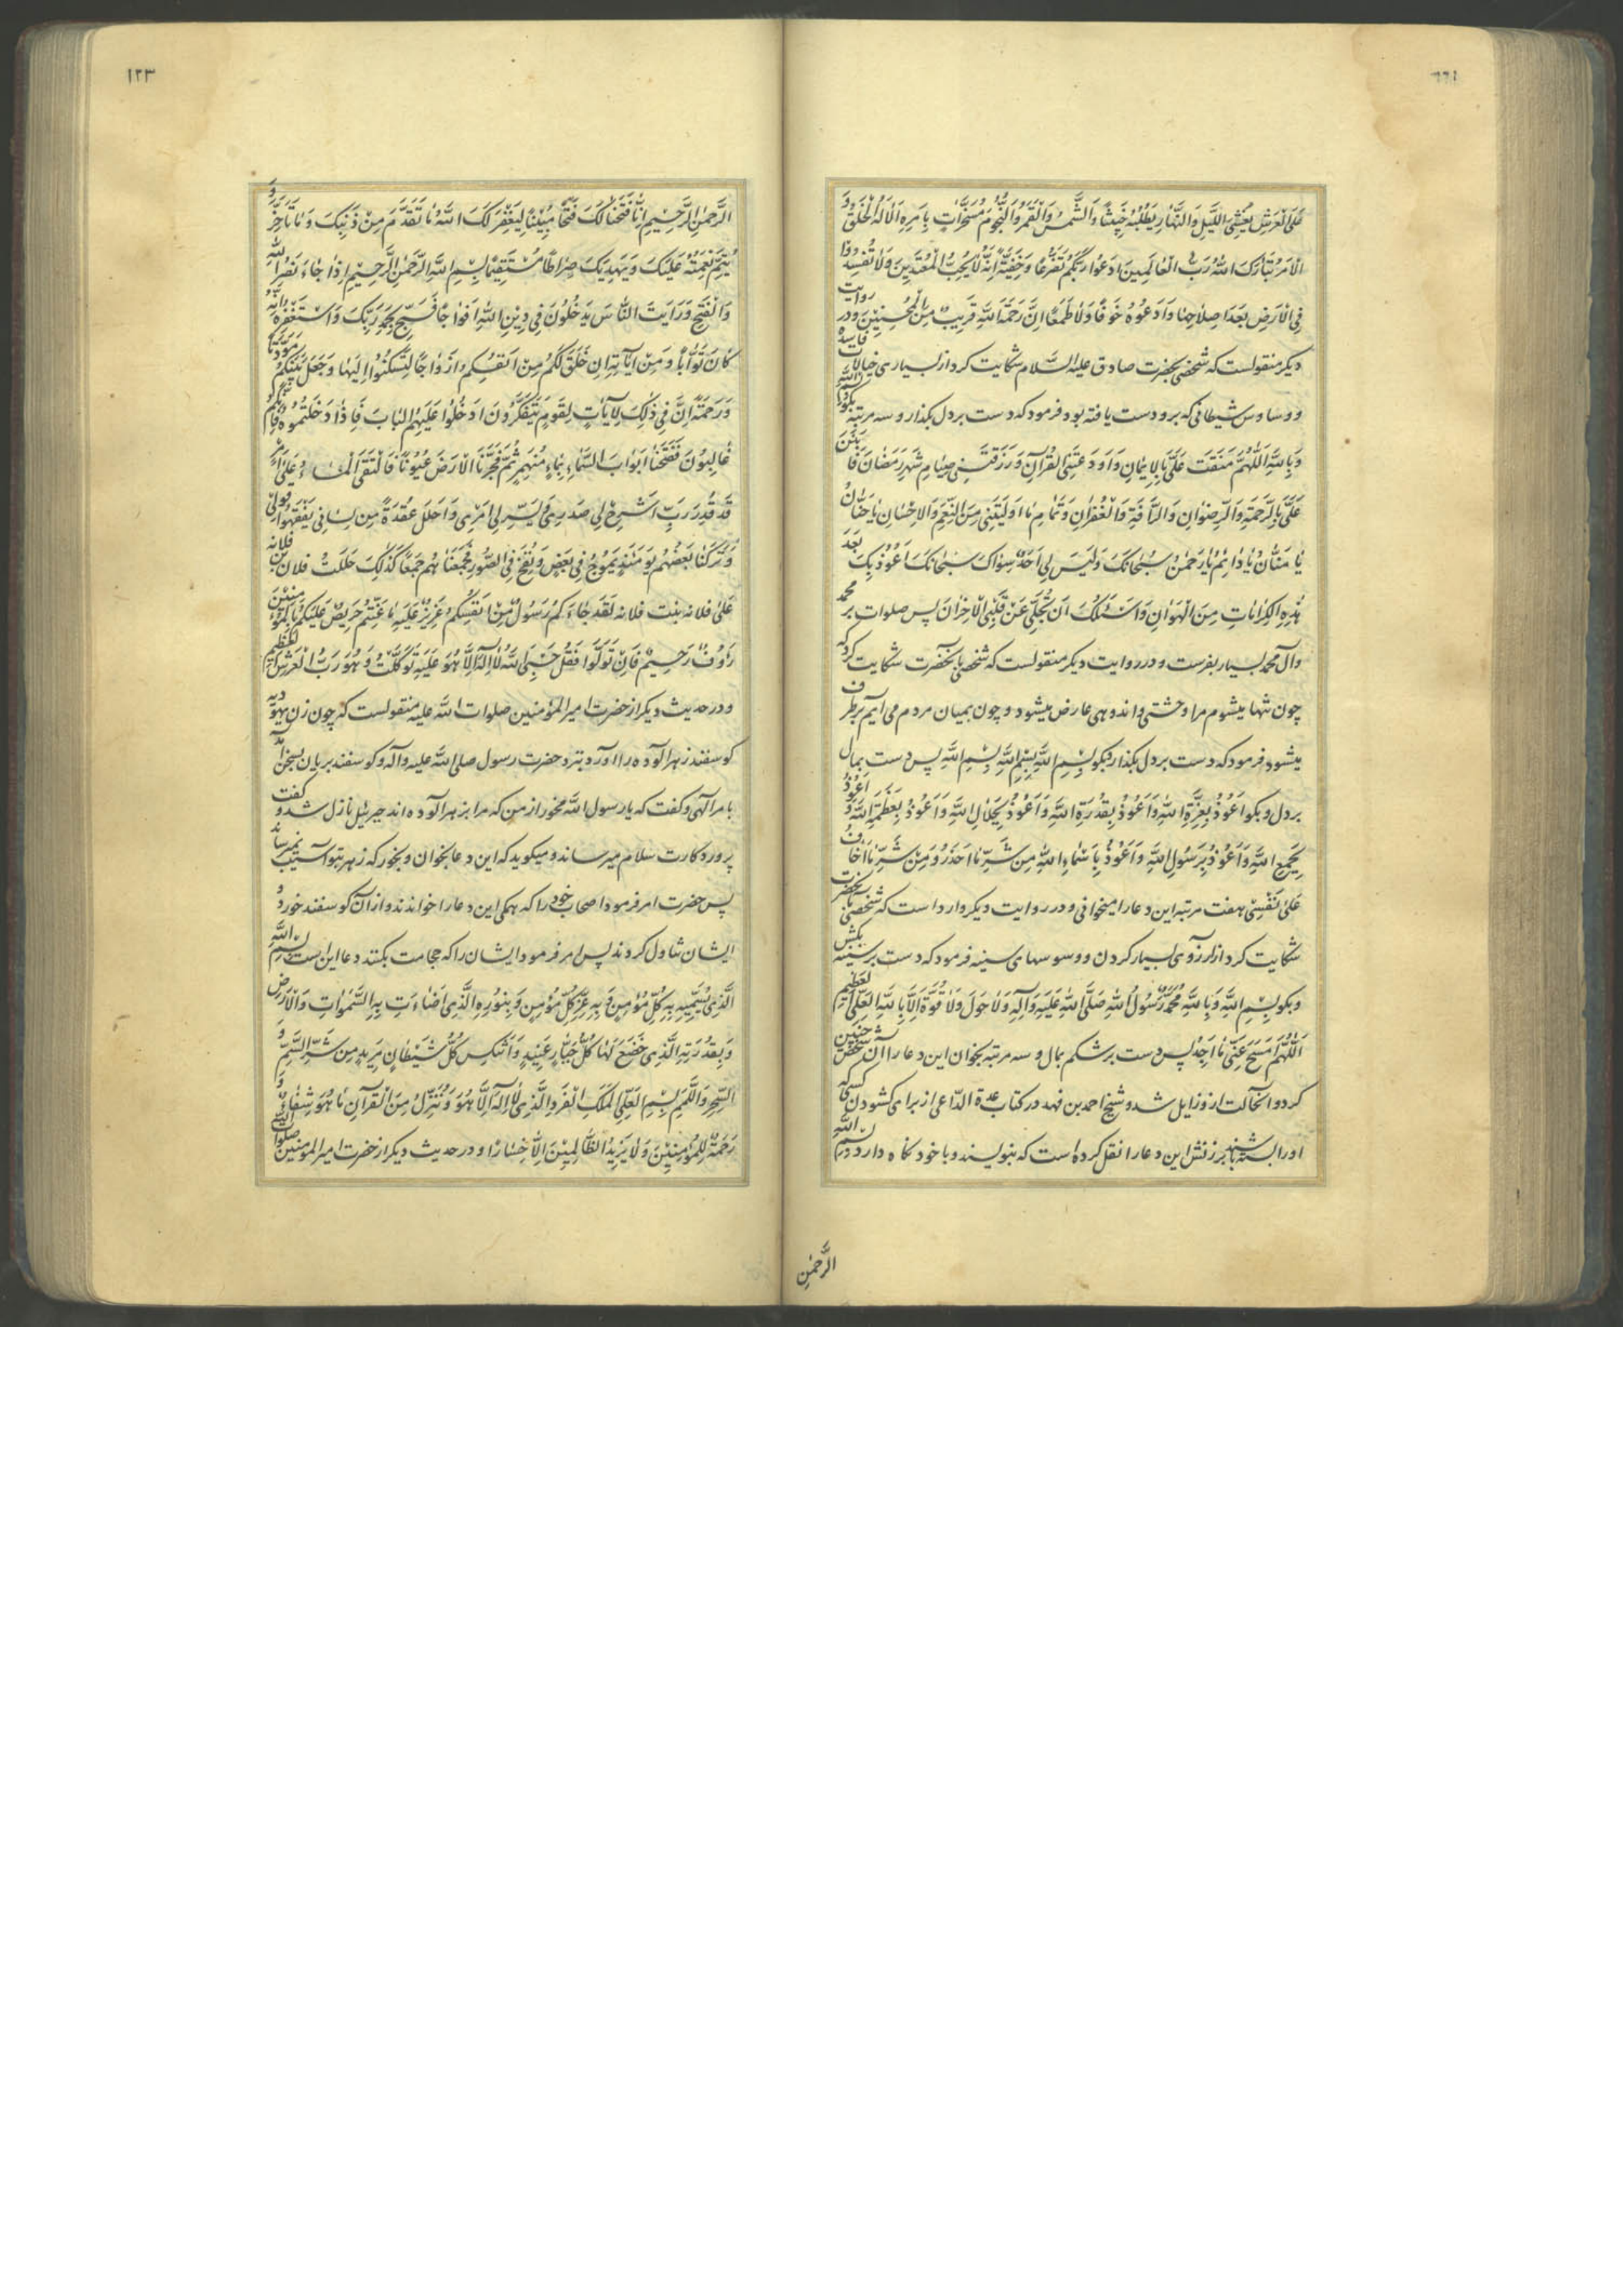 ١٢٢
عَلَى الْعَرْشِ يُغْشِى اللَّيْلَ وَالنَّهَارَ يَطْلُبُهُ حَثِيثًا وَالشَّمْسَ وَالْقَمَرَ وَالنُّجُومَ مُسَخَّرَاتٍ بِاَمْرِهِ اَلَا لَهُ الْخَلْقُ وَ
الْاَمْرُ تَبَارَكَ اللهُ رَبُّ الْعَالَمِينَ اُدْعُوا رَبَّكُمْ تَضَرُّعًا وَخُفْيَةً اِنَّهُ لَا يُحِبُّ الْمُعْتَدِينَ وَلَا تُفْسِدُوا
فِى الْاَرْضِ بَعْدَ اِصْلَاحِهَا وَادْعُوهُ خَوْفًا وَطَمَعًا اِنَّ رَحْمَةَ اللهِ قَرِيبٌ مِنَ الْمُحْسِنِينَ ودر روايت
ديكر منقولست كه شخصى بحضرت صادق عليه السّلام شكايت كرد از بسيارى خيالات فاسده
و وساوس شيطانى كه برو دست يافته بود فرمود كه دست بر دل بكذار و سه مرتبه بكو بِسْمِ اللهِ
وَبِاللهِ اَللّهُمَّ مَنَنْتَ عَلَىَّ بِالْاِيمَانِ وَاَوْدَعْتَنِى الْقُرْآنَ وَرَزَقْتَنِى صِيَامَ شَهْرِ رَمَضَانَ فَامْنُنْ
عَلَىَّ بِالرَّحْمَةِ وَالرِّضْوَانِ وَالرَّأْفَةِ وَالْغُفْرَانِ وَتَمَامِ مَا اَوْلَيْتَنِى مِنَ النِّعَمِ وَالْاِحْسَانِ يَا حَنَّانُ
يَا مَنَّانُ يَا دَائِمُ يَا رَحْمٰنُ سُبْحَانَكَ وَلَيْسَ لِى اَحَدٌ سِوَاكَ سُبْحَانَكَ اَعُوذُ بِكَ بَعْدَ
هٰذِهِ الْكَرَامَاتِ مِنَ الْهَوَانِ وَاَسْئَلُكَ اَنْ تُجَلِّىَ عَنْ قَلْبِى الْاَحْزَانَ پس صلوات بر محمد
وآل محمد بسيار بفرست و در روايت ديكر منقولست كه شخصى بآنحضرت شكايت كرد كه
چون تنها ميشوم مرا وحشتى و اندوهى عارض ميشود و چون بميان مردم مى آيم بر طرف
ميشود فرمود كه دست بر دل بكذار و بكو بِسْمِ اللهِ بِسْمِ اللهِ بِسْمِ اللهِ پس دست بمال
بر دل و بكو اَعُوذُ بِعِزَّةِ اللهِ وَاَعُوذُ بِقُدْرَةِ اللهِ وَاَعُوذُ بِجَلَالِ اللهِ وَاَعُوذُ بِعَظَمَةِ اللهِ وَ اَعُوذُ
بِجَمْعِ اللهِ وَاَعُوذُ بِرَسُولِ اللهِ وَاَعُوذُ بِاَسْمَاءِ اللهِ مِنْ شَرِّ مَا اَحْذَرُ وَمِنْ شَرِّ مَا اَخَافُ
عَلَى نَفْسِى هفت مرتبه اين دعا را ميخوانى و در روايت ديكر وارد است كه شخصى بآنحضرت
شكايت كرد از آرزوى بسيار كردن و وسوسهاى سينه فرمود كه دست بر سينه بكش
و بكو بِسْمِ اللهِ وَبِاللهِ مُحَمَّدٌ رَسُولُ اللهِ صَلَّى اللهُ عَلَيْهِ وَآلِهِ وَلَا حَوْلَ وَلَا قُوَّةَ اِلَّا بِاللهِ الْعَلِىِّ الْعَظِيمِ
اَللّهُمَّ امْسَحْ عَنِّى مَا اَجِدُ پس دست بر شكم بمال و سه مرتبه بخوان اين دعا را آن شخص چنين
كرد و آنحالت ازو زايل شد و شيخ احمد بن فهد در كتاب عدة الدّاعى از براى كشودن كسى كه
او را بسته باشند بر زنش اين دعا را نقل كرده است كه بنويسند و با خود نكاه دارد بِسْمِ اللهِ
الرَّحْمٰنِ
١٢٣
الرَّحْمٰنِ الرَّحِيمِ اِنَّا فَتَحْنَا لَكَ فَتْحًا مُبِينًا لِيَغْفِرَ لَكَ اللهُ مَا تَقَدَّمَ مِنْ ذَنْبِكَ وَمَا تَاَخَّرَ وَ
يُتِمَّ نِعْمَتَهُ عَلَيْكَ وَيَهْدِيَكَ صِرَاطًا مُسْتَقِيمًا بِسْمِ اللهِ الرَّحْمٰنِ الرَّحِيمِ اِذَا جَاءَ نَصْرُ اللهِ
وَالْفَتْحُ وَرَاَيْتَ النَّاسَ يَدْخُلُونَ فِى دِينِ اللهِ اَفْوَاجًا فَسَبِّحْ بِحَمْدِ رَبِّكَ وَاسْتَغْفِرْهُ اِنَّهُ
كَانَ تَوَّابًا وَمِنْ آيَاتِهِ اَنْ خَلَقَ لَكُمْ مِنْ اَنْفُسِكُمْ اَزْوَاجًا لِتَسْكُنُوا اِلَيْهَا وَجَعَلَ بَيْنَكُمْ مَوَدَّةً
وَرَحْمَةً اِنَّ فِى ذٰلِكَ لَآيَاتٍ لِقَوْمٍ يَتَفَكَّرُونَ اُدْخُلُوا عَلَيْهِمُ الْبَابَ فَاِذَا دَخَلْتُمُوهُ فَاِنَّكُمْ
غَالِبُونَ فَفَتَحْنَا اَبْوَابَ السَّمَاءِ بِمَاءٍ مُنْهَمِرٍ ثُمَّ فَجَّرْنَا الْاَرْضَ عُيُونًا فَالْتَقَى الْمَاءُ عَلَى اَمْرٍ
قَدْ قُدِرَ رَبِّ اشْرَحْ لِى صَدْرِى وَيَسِّرْ لِى اَمْرِى وَاحْلُلْ عُقْدَةً مِنْ لِسَانِى يَفْقَهُوا قَوْلِى
وَتَرَكْنَا بَعْضَهُمْ يَوْمَئِذٍ يَمُوجُ فِى بَعْضٍ وَنُفِخَ فِى الصُّورِ فَجَمَعْنَاهُمْ جَمْعًا كَذٰلِكَ حَلَلْتُ فلان بن فلانه
عَلَى فلانه بنت فلانه لَقَدْ جَاءَكُمْ رَسُولٌ مِنْ اَنْفُسِكُمْ عَزِيزٌ عَلَيْهِ مَا عَنِتُّمْ حَرِيصٌ عَلَيْكُمْ بِالْمُؤْمِنِينَ
رَؤُفٌ رَحِيمٌ فَاِنْ تَوَلَّوْا فَقُلْ حَسْبِىَ اللهُ لَا اِلٰهَ اِلَّا هُوَ عَلَيْهِ تَوَكَّلْتُ وَهُوَ رَبُّ الْعَرْشِ الْعَظِيمِ
و در حديث ديكر از حضرت امير المؤمنين صلوات الله عليه منقولست كه چون زن يهوديه
كوسفند زهر آلوده را آورد بنزد حضرت رسول صلى الله عليه وآله و كوسفند بريان بسخن آمد
بامر الهى و كفت كه يا رسول الله مخور از من كه مرا بزهر آلوده اند جبرئيل نازل شد و كفت
پروردكارت سلام ميرساند و ميكويد كه اين دعا بخوان و بخور كه زهر بتو آسيب نميرساند
پس حضرت امر فرمود اصحاب خود را كه همكى اين دعا را خواندند و از آن كوسفند خورد و
ايشان تناول كردند پس امر فرمود ايشان را كه حجامت بكنند دعا اين است بِسْمِ اللهِ
الَّذِى يُسَمِّيهِ بِهِ كُلُّ مُؤْمِنٍ وَبِهِ عِزُّ كُلِّ مُؤْمِنٍ وَبِنُورِهِ الَّذِى اَضَاءَتْ بِهِ السَّمٰوَاتُ وَالْاَرْضُ
وَبِقُدْرَتِهِ الَّذِى خَضَعَ لَهَا كُلُّ جَبَّارٍ عَنِيدٍ وَانْتَكَسَ كُلُّ شَيْطَانٍ مَرِيدٍ مِنْ شَرِّ السَّمِّ وَ
السِّحْرِ وَاللَّمَمِ بِسْمِ الْعَلِىِّ الْمَلِكِ الْفَرْدِ الَّذِى لَا اِلٰهَ اِلَّا هُوَ وَنُنَزِّلُ مِنَ الْقُرْآنِ مَا هُوَ شِفَاءٌ وَ
رَحْمَةٌ لِلْمُؤْمِنِينَ وَلَا يَزِيدُ الظَّالِمِينَ اِلَّا خَسَارًا و در حديث ديكر از حضرت امير المؤمنين صلوات الله